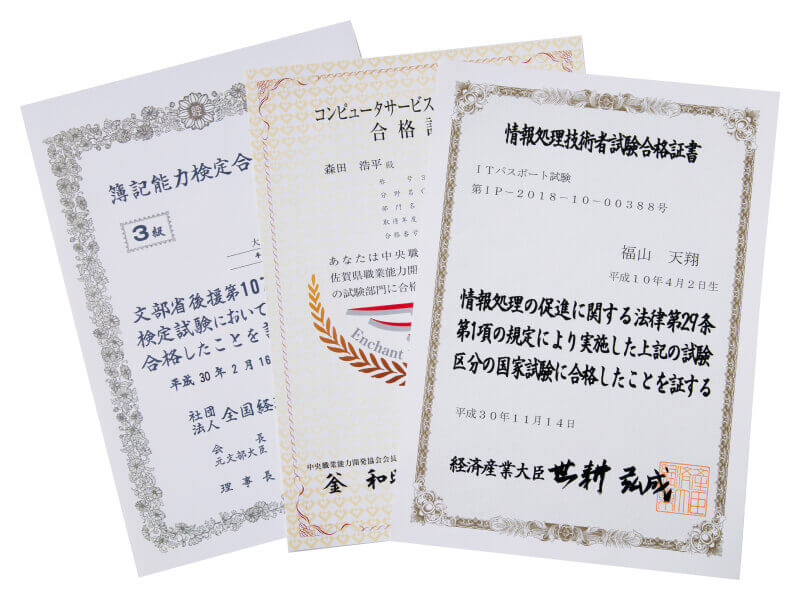 簿記能力検定合
3級
大
平
文部省後援第107
検定試験において
合格したことを証
平成30年2月16
社団
法人 全国経
会長
元文部大臣
理事長
コンピュータサービス
合格証
森田 浩平 殿
番号 3
分野名 C
部門名
取得年度
合格番号
あなたは中央職
佐賀県職業能力開
の試験部門に合格
Enchant
中央職業能力開発協会会長
釜 和明
情報処理技術者試験合格証書
ITパスポート試験
第IP-2018-10-00388号
福山 天翔
平成10年4月2日生
情報処理の促進に関する法律第29条
第1項の規定により実施した上記の試験
区分の国家試験に合格したことを証する
平成30年11月14日
経済産業大臣 世耕弘成